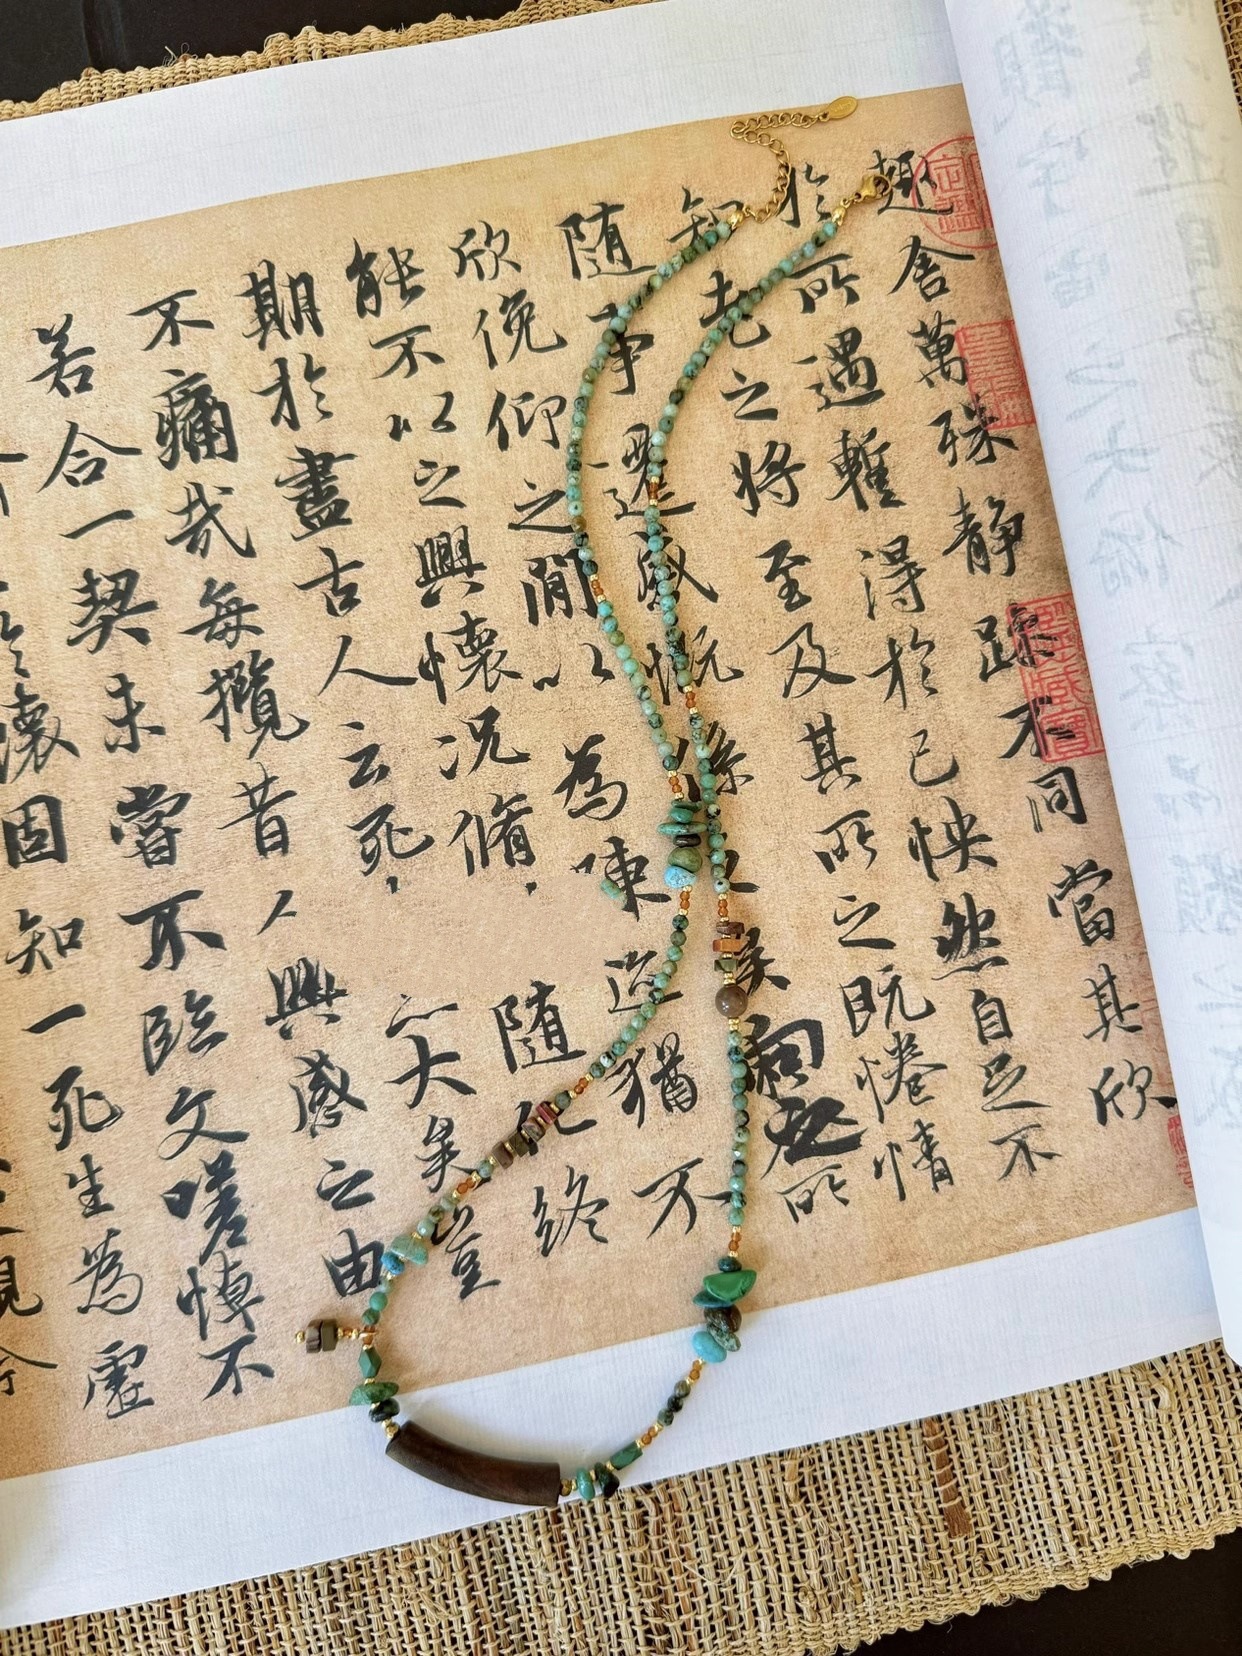 趣舍萬殊静躁不同當其欣
於所遇蹔得於己怏然自足不
知老之將至及其所之既惓情
随事遷感慨係之矣向之所
欣俛仰之間以為陳迹猶不
能不以之興懷況脩随化終
期於盡古人云死大矣豈
不痛哉每攬昔人興感之由
若合一契未嘗不臨文嗟悼不
懷固知一死生為虛